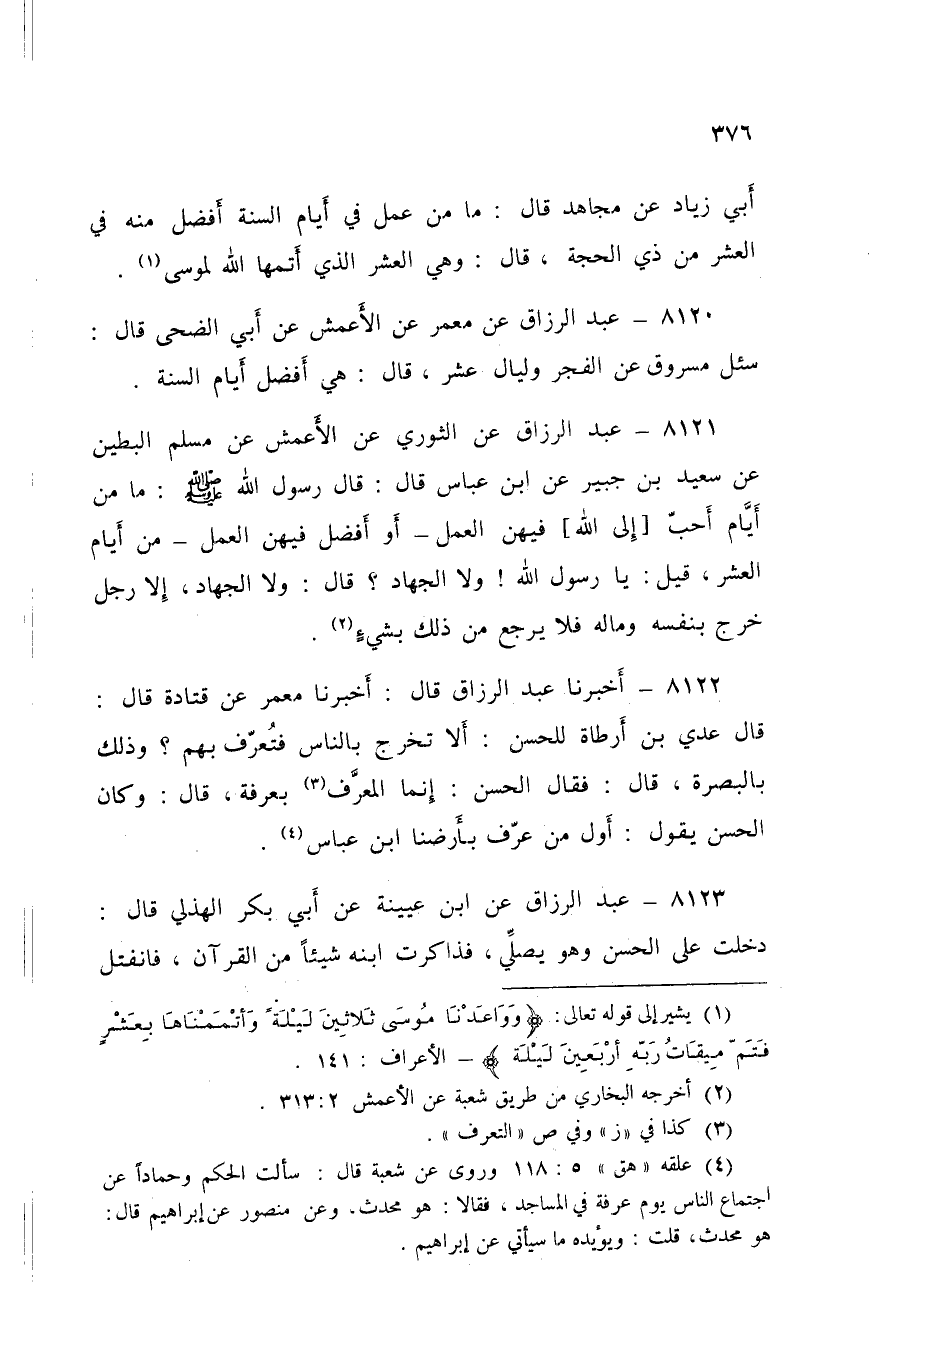 ٣٧٦
أَبي زياد عن مجاهد قال : ما من عمل في أَيام السنة أَفضل منه في
العشر من ذي الحجة ، قال : وهي العشر الذي أَتمها الله لموسى(١) .
٨١٢٠ – عبد الرزاق عن معمر عن الأَعمش عن أَبي الضحى قال :
سئل مسروق عن الفجر وليال عشر ، قال : هي أَفضل أَيام السنة .
٨١٢١ – عبد الرزاق عن الثوري عن الأَعمش عن مسلم البطين
عن سعيد بن جبير عن ابن عباس قال : قال رسول الله ﷺ : ما من
أَيَّام أَحبّ [إلى الله] فيهن العمل – أَو أَفضل فيهن العمل – من أَيام
العشر ، قيل : يا رسول الله ! ولا الجهاد ؟ قال : ولا الجهاد ، إلا رجل
خرج بنفسه وماله فلا يرجع من ذلك بشيءٍ(٢) .
٨١٢٢ – أَخبرنا عبد الرزاق قال : أَخبرنا معمر عن قتادة قال :
قال عدي بن أَرطاة للحسن : أَلا تخرج بالناس فتُعرّف بهم ؟ وذلك
بالبصرة ، قال : فقال الحسن : إنما المعرَّف(٣) بعرفة ، قال : وكان
الحسن يقول : أَول من عرّف بأَرضنا ابن عباس(٤) .
٨١٢٣ – عبد الرزاق عن ابن عيينة عن أَبي بكر الهذلي قال :
دخلت على الحسن وهو يصلِّي ، فذاكرت ابنه شيئاً من القرآن ، فانفتل
(١) يشير إلى قوله تعالى : ﴿ وَوَاعَدْنَا مُوسَى ثَلاثِينَ لَيْلَةً وَأتْمَمْنَاهَا بِعَشْرٍ
فَتَمَّ مِيقَاتُ رَبِّهِ أرْبَعِينَ لَيْلَة ﴾ – الأعراف : ١٤١ .
(٢) أخرجه البخاري من طريق شعبة عن الأعمش ٢ : ٣١٣ .
(٣) كذا في «ز» وفي ص «التعرف» .
(٤) علقه «هق» ٥ : ١١٨ وروى عن شعبة قال : سألت الحكم وحماداً عن
اجتماع الناس يوم عرفة في المساجد ، فقالا : هو محدث . وعن منصور عن إبراهيم قال :
هو محدث ، قلت : ويؤيده ما سيأتي عن إبراهيم .